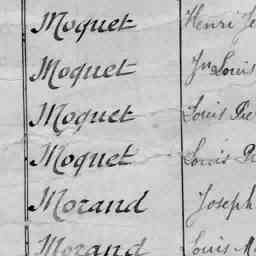 Moquet Henri Je
Moquet Jn Louis
Moquet Louis Pie
Moquet Louis Pi
Morand Joseph
Morand Louis M